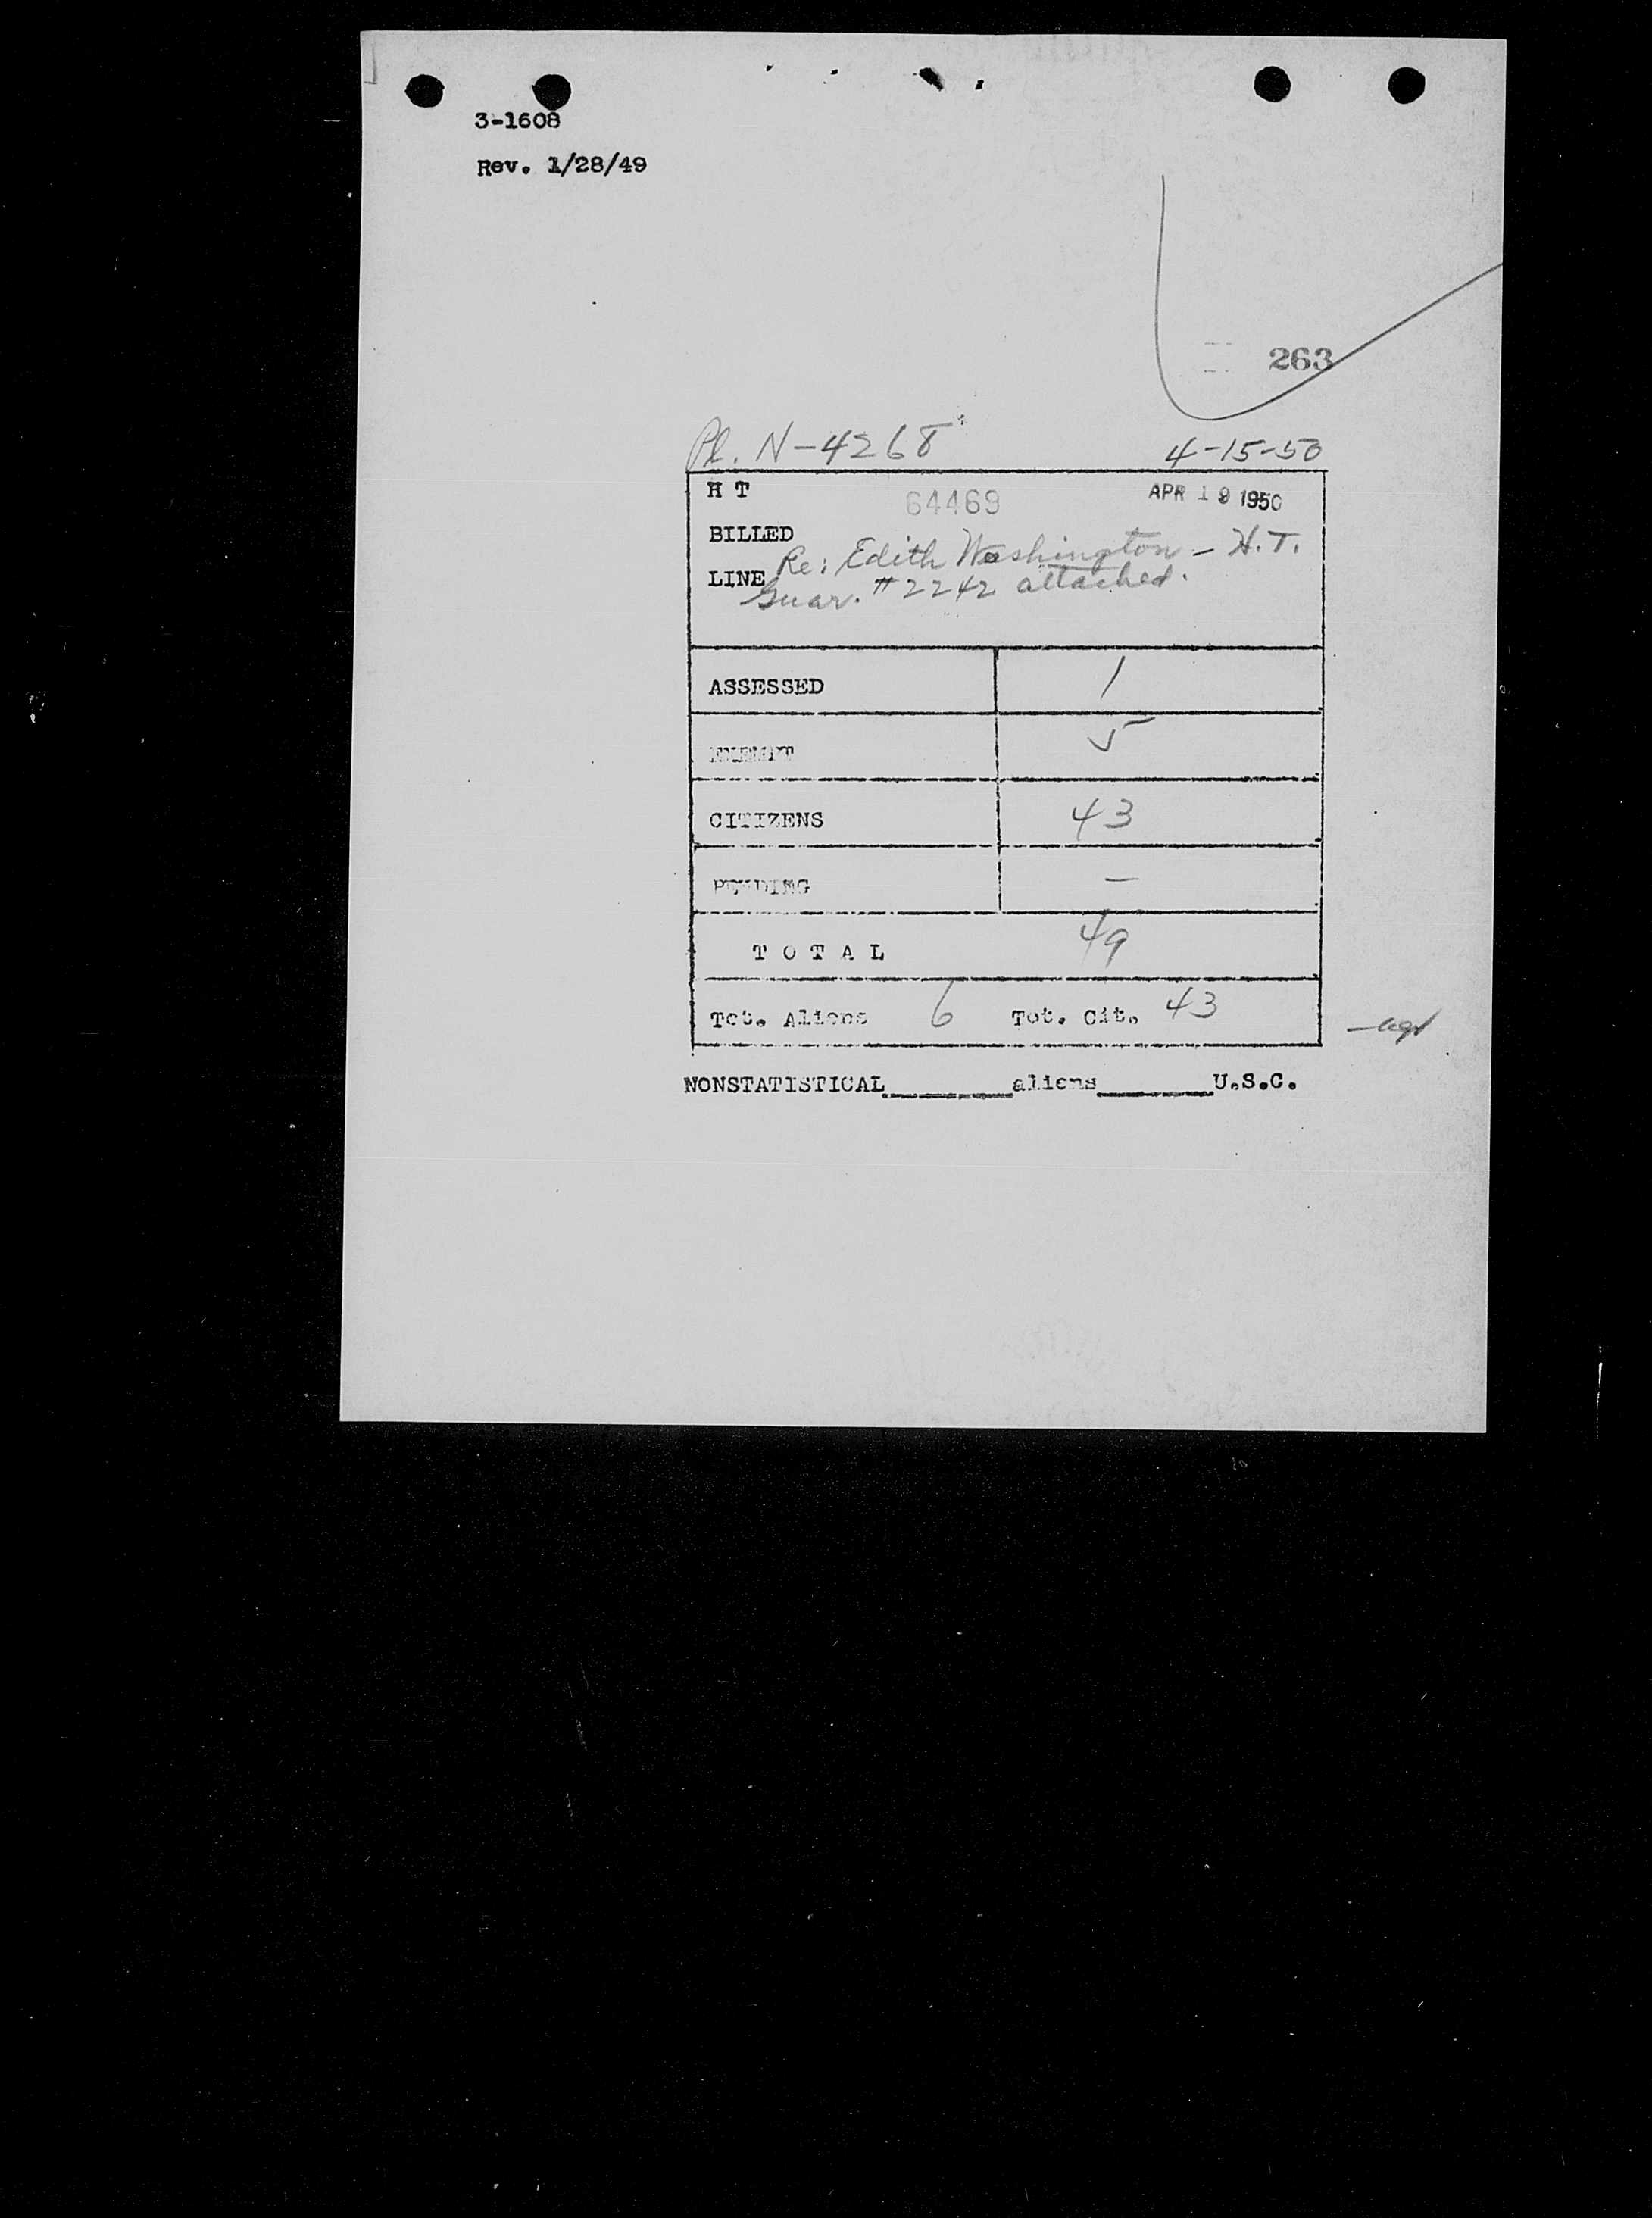 3-1608
Rev. 1/28/49
263
Pl. N-4268
4-15-50
H T 64469 APR 19 1950
BILLED
Re: Edith Washington - H.T.
LINE Guar. #2242 attached.
ASSESSED 1
EXEMPT 5
CITIZENS 43
PENDING —
T O T A L 49
Tot. Aliens 6 Tot. Cit. 43
NONSTATISTICAL________aliens________U.S.C.